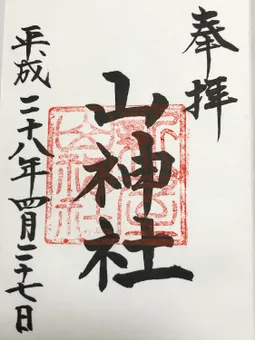 奉拝
山神社
平成二十八年四月二十七日